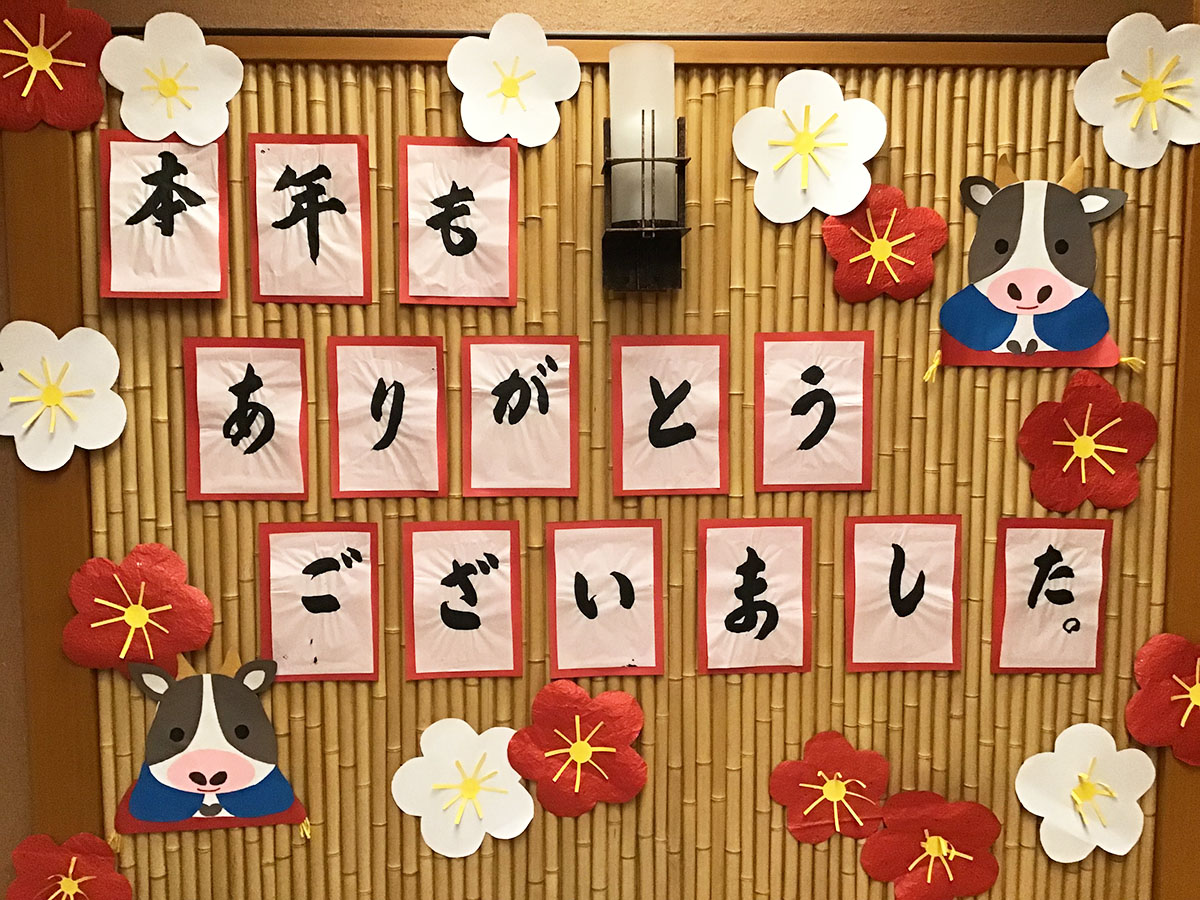 本年も
ありがとう
ございました。